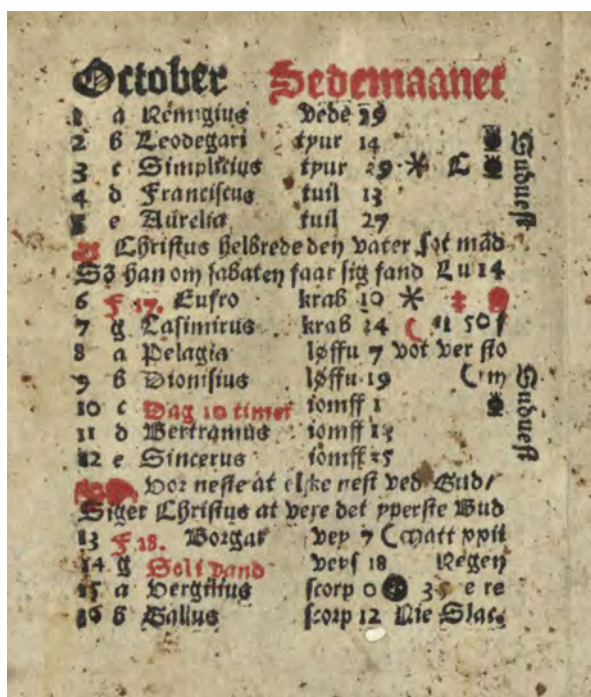 October Sedemaanet
1 a Remigius vede 29
2 b Leodegari tyur 14
3 c Simplicius tyur 29 * C
4 d Franciscus tuil 13
5 e Aurelia tuil 27
Suduest
Christus helbrede den vater sot mād
Sō han om sabaten faar sig fand Lu 14
6 F 17. Eufro krab 10 *
7 g Casimirus krab 24 11 50 f
8 a Pelagia løffu 7 vot ver sto
9 b Dionisius løffu 19 m
10 c Dag 10 timer iomff 1
Suduest
11 d Bertramus iomff 13
12 e Sincerus iomff 25
vor neste at elske nest ved Gud/
Siger Christus at vere det yperste Bud
13 F 18. Borgar vey 7 Matt xxii
14 g Soli vand veys 18 Regen
15 a Vergilius scorp 0 e re
16 b Gallus scorp 12 Nie Slac.